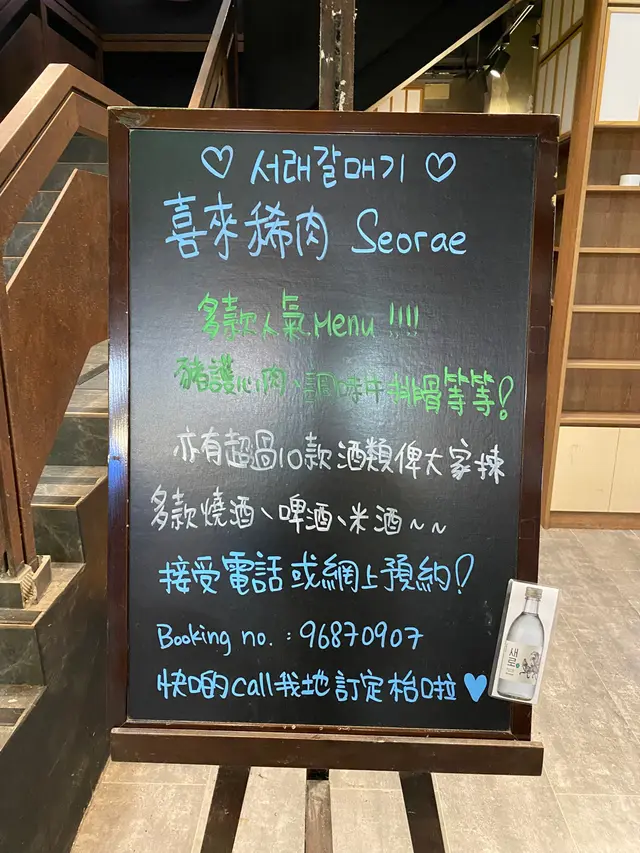 ♡ 서래갈매기 ♡
喜來稀肉 Seorae
多款人氣Menu !!!!
豬護心肉、調味牛排骨等等!
亦有超過10款酒類俾大家揀
多款燒酒、啤酒、米酒~~
接受電話或網上預約!
Booking no. : 96870907
快啲call我地訂定枱啦♥
새로